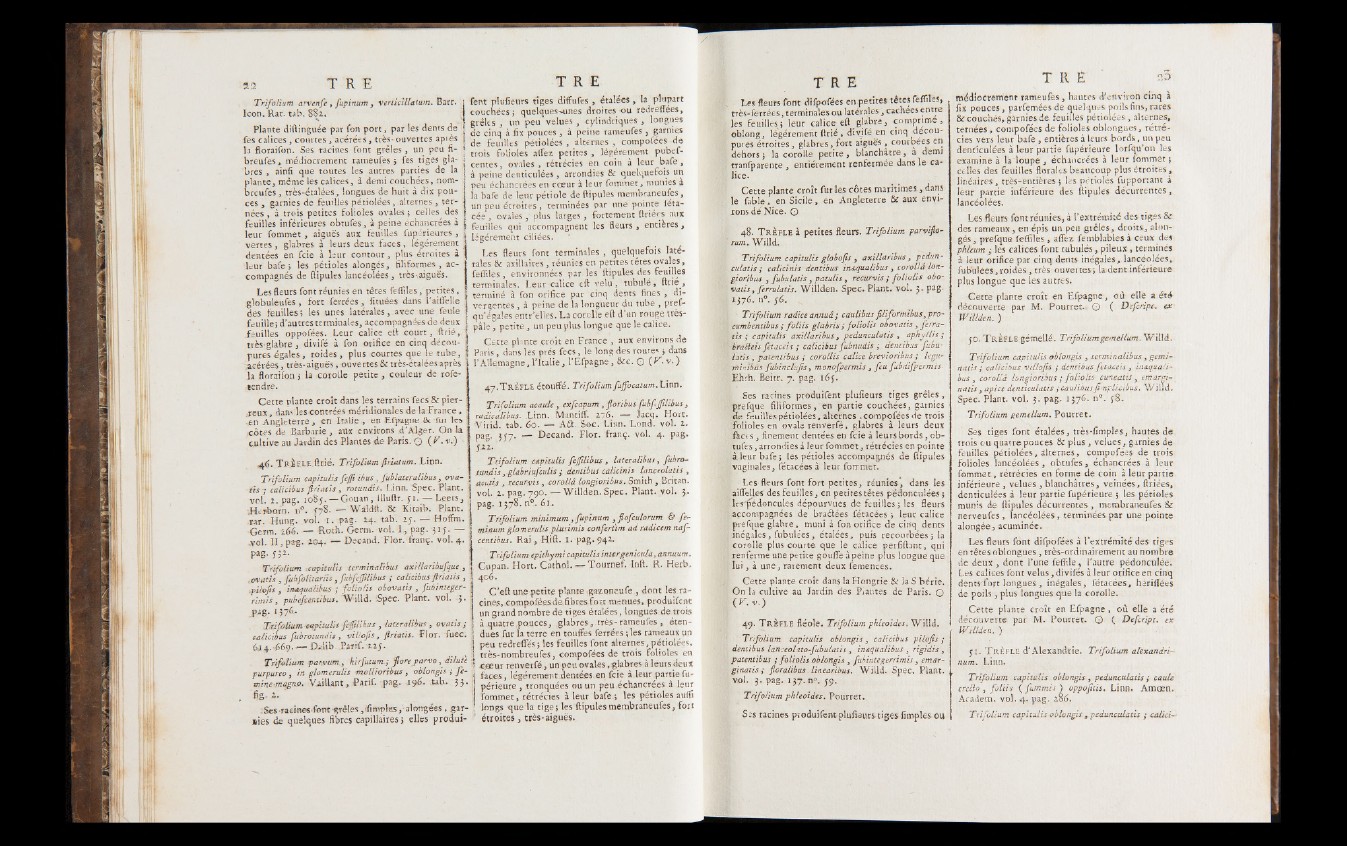 22 T R E
Trifolium arvense, supinum, verticillatum. Barr.
Icon. Rar. tab. 882.
Plante distinguée par son port, par les dents de
ses calices, courtes, acérées, très-ouvertes après
la floraison. Ses racines sont grêles, un peu fi-
breuses, médiocrement rameuses ; ses tiges gla-
bres, ainsi que toutes les autres parties de la
plante, même les calices, à demi couchées, nom-
breuses, très-étalées, longues de huit à dix pou-
ces, garnies de feuilles pétiolées, alternes, ter-
nées, à trois petites folioles ovales ; celles des
feuilles inférieures obtuses, à peine échancrées à
leur sommet, aiguës aux feuilles supérieures,
vertes, glabres à leurs deux faces, légérement
dentées en scie à leur contour, plus étroites à
leur base ; les pétioles alongés, filiformes, ac-
compagnés de stipules lancéolées, très-aiguës.
Les fleurs sont réunies en têtes sessiles, petites,
globuleuses, fort serrées, situées dans l'aisselle
des feuilles ; les unes latérales, avec une seule
feuille ; d'autres terminales, accompagnées de deux
feuilles opposées. Leur calice est court, strié,
très-glabre, divisé à son orifice en cinq décou-
pures égales, roides, plus courtes que le tube,
acérées, très-aiguës, ouvertes & très-étalées après
la floraison ; la corolle petite, couleur de rose-
tendre.
Cette plante croît dans les terrains secs & pier-
reux, dans les contrées méridionales de la France,
en Angleterre, en Italie, en Espagne & sur les
côtes de Barbarie, aux environs d'Alger. On la
cultive au Jardin des Plantes de Paris. ☉ (V. v.)
46. TRÈFLE strié. Trifolium striatum. Linn.
Trifolium capitulis sessilibus, sublateralibus, ova-
tis ; calicibus striatis, rotundis. Linn. Spec. Plant.
vol. 2. pag. 1085. — Gouan, Illustr. 51. — Leers,
Herborn. n°. 578. — Waldst. & Kitaib. Plant.
rar. Hung. vol. 1. pag. 24. tab. 25. — Hoffm.
Germ. 266. — Roth. Germ. vol. I, pag. 315. —
vol. II, pag. 204. — Decand. Flor. franç. vol. 4.
pag. 532.
Trifolium capitulis terminalibus axillaribusque,
ovatis, subsolitariis, subsessilibus ; calicibus striatis,
pilosis, inæqualibus ; foliolis obovatis, subinteger-
rimis, pubescentibus. Willd. Spec. Plant. vol. 3.
pag. 1376.
Trifolium capitulis sessilibus, lateralibus, ovatis ;
calicibus subrotundis, villosis, striatis. Flor. suec.
614. 669. — Dalib. Paris. 225.
Trifolium parvum, hirsutum ; flore parvo, dilutè
purpureo, in glomerulis mollioribus, oblongis ; se-
mine magno. Vaillant, Paris. pag. 196. tab. 33.
fig. 2.
Ses racines sont grêles, simples, alongées, gar-
nies de quelques fibres capillaires ; elles produi-
T R E
sent plusieurs tiges diffuses, étalées, la plupart
couchées ; quelques-unes droites ou redressées,
grêles, un peu velues, cylindriques, longues
de cinq à six pouces, à peine rameuses, garnies
de feuilles pétiolées, alternes, composées de
trois folioles assez petites, légérement pubes-
centes, ovales, rétrécies en coin à leur base,
à peine denticulées, arrondies & quelquefois un
peu échancrées en cœur à leur sommet, munies à
la base de leur pétiole de stipules membraneuses,
un peu étroites, terminées par une pointe séta-
cée, ovales, plus larges, fortement striées aux
feuilles qui accompagnent les fleurs, entières,
légérement ciliées.
Les fleurs sont terminales, quelquefois laté-
rales & axillaires, réunies en petites têtes ovales,
sessiles, environnées par les stipules des feuilles
terminales. Leur calice est velu, tubulé, strié,
terminé à son orifice par cinq dents fines, di-
vergentes, à peine de la longueur du tube, pres-
qu'égales entr'elles. La corolle est d'un rouge très-
pâle, petite, un peu plus longue que le calice.
Cette plante croît en France, aux environs de
Paris, dans les prés secs, le long des routes ; dans
l'Allemagne, l'Italie, l'Espagne, &c. ☉ (V. v.)
47. TRÈFLE étouffé. Trifolium suffocatum. Linn.
Trifolium acaule, exscapum, floribus subsessilibus,
radicalibus. Linn. Mantiss. 276. — Jacq. Hort.
Virid. tab. 60. — Act. Soc. Linn. Lond. vol. 2.
pag. 357. — Decand. Flor. franç. vol. 4. pag.
522.
Trifolium capitulis sessilibus, lateralibus, subro-
tundis, glabriusculis ; dentibus calicinis lanceolatis,
acutis, recurvis, corollâ longioribus. Smith, Britan.
vol. 2. pag. 790. — Willden. Spec. Plant. vol. 3.
pag. 1378. n°. 61.
Trifolium minimum, supinum, flosculorum & se-
minum glomerulis plurimis confertim ad radicem nas-
centibus. Rai, Hist. 1. pag. 942.
Trifolium epithymi capitulis intergenicula, annuum.
Cupan. Hort. Cathol. — Tournef. Inst. R. Herb.
406.
C'est une petite plante gazoneuse, dont les ra-
cines, composées de fibres fort menues, produisent
un grand nombre de tiges étalées, longues de trois
à quatre pouces, glabres, très-rameuses, éten-
dues sur la terre en touffes serrées ; les rameaux un
peu redressés ; les feuilles sont alternes, pétiolées,
très-nombreuses, composées de trois folioles en
cœur renversé, un peu ovales, glabres à leurs deux
faces, légérement dentées en scie à leur partie su-
périeure, tronquées ou un peu échancrées à leur
sommet, rétrécies à leur base ; les pétioles aussi
longs que la tige ; les stipules membraneuses, fort
étroites, très-aiguës.
T R E
Les fleurs sont disposées en petites têtes sessiles,
très-serrées, terminales ou latérales, cachées entre
les feuilles ; leur calice est glabre, comprimé,
oblong, légérement strié, divisé en cinq décou-
pures étroites, glabres, fort aiguës, courbées en
dehors ; la corolle petite, blanchâtre, à demi
transparente, entiérement renfermée dans le ca-
lice.
Cette plante croît sur les côtes maritimes, dans
le sable, en Sicile, en Angleterre & aux envi-
rons de Nice. ☉
48. TRÈFLE à petites fleurs. Trifolium parviflo-
rum. Willd.
Trifolium capitulis globosis, axillaribus, pedun-
culatis ; calicinis dentibus inæqualibus, corollâ lon-
gioribus, subulatis, patulis, recurvis ; foliolis obo-
vatis, serrulatis. Willden. Spec. Plant. vol. 3. pag.
1376. n°. 56.
Trifolium radice annuâ ; caulibus filiformibus, pro-
cumbentibus ; foliis glabris ; foliolis obovatis, serra-
tis ; capitulis axillaribus, pedunculatis, aphyllis ;
bracteis setaceis ; calicibus subnudis ; dentibus subu-
latis, patentibus ; corollis calice brevioribus ; legu-
minibus subinclusis, monospermis, seu subdispermis.
Ehrh. Beitr. 7. pag. 165.
Ses racines produisent plusieurs tiges grêles,
presque filiformes, en partie couchées, garnies
de feuilles pétiolées, alternes, composées de trois
folioles en ovale renversé, glabres à leurs deux
faces, finement dentées en scie à leurs bords, ob-
tuses, arrondies à leur sommet, rétrécies en pointe
à leur base ; les pétioles accompagnés de stipules
vaginales, sétacées à leur sommet.
Les fleurs sont fort petites, réunies, dans les
aisselles des feuilles, en petites têtes pédonculées ;
les pédoncules dépourvues de feuilles ; les fleurs
accompagnées de bractées sétacées ; leur calice
presque glabre, muni à son orifice de cinq dents
inégales, subulées, étalées, puis recourbées ; la
corolle plus courte que le calice persistant, qui
renferme une petite gousse à peine plus longue que
lui, à une, rarement deux semences.
Cette plante croît dans la Hongrie & la Sibérie.
On la cultive au Jardin des Plantes de Paris. ☉
(V. v.)
49. TRÈFLE fléole. Trifolium phleoides. Willd.
Trifolium capitulis oblongis, calicibus pilosis ;
dentibus lanceolato-subulatis, inæqualibus, rigidis,
patentibus ; foliolis oblongis, subintegerrimis, emar-
ginatis ; floralibus linearibus. Willd. Spec. Plant.
vol. 3. pag. 137. n°. 59.
Trifolium phleoides. Pourret.
Ses racines produisent plusieurs tiges simples ou
T R E 23
médiocrement rameuses, hautes d'environ cinq à
six pouces, parsemées de quelques poils fins, rares
& couchés, garnies de feuilles pétiolées, alternes,
ternées, composées de folioles oblongues, rétré-
cies vers leur base, entières à leurs bords, un peu
denticulées à leur partie supérieure lorsqu'on les
examine à la loupe, échancrées à leur sommet ;
celles des feuilles florales beaucoup plus étroites,
linéaires, très-entières ; les pétioles supportant à
leur partie inférieure des stipules décurrentes,
lancéolées.
Les fleurs sont réunies, à l'extrémité des tiges &
des rameaux, en épis un peu grêles, droits, alon-
gés, presque sessiles, assez semblables à ceux des
phleum ; les calices sont tubulés, pileux, terminés
à leur orifice par cinq dents inégales, lancéolées,
subulées, roides, très ouvertes ; la dent inférieure
plus longue que les autres.
Cette plante croît en Espagne, où elle a été
découverte par M. Pourret. ☉ ( Descript. ex
Willden. )
50. TRÈFLE gémellé. Trifolium gemellum. Willd.
Trifolium capitulis oblongis, terminalibus, gemi-
natis ; calicibus villosis ; dentibus setaceis, inæquali-
bus, corollâ longioribus ; foliolis cuneatis, emargi-
natis, apice denticulatis ; caulibus simplicibus. Willd.
Spec. Plant. vol. 3. pag. 1376. n°. 58.
Trifolium gemellum. Pourret.
Ses tiges sont étalées, très-simples, hautes de
trois ou quatre pouces & plus, velues, garnies de
feuilles pétiolées, alternes, composées de trois
folioles lancéolées, obtuses, échancrées à leur
sommet, rétrécies en forme de coin à leur partie
inférieure, velues, blanchâtres, veinées, striées,
denticulées à leur partie supérieure ; les pétioles
munis de stipules décurrentes, membraneuses &
nerveuses, lancéolées, terminées par une pointe
alongée, acuminée.
Les fleurs sont disposées à l'extrémité des tiges
en têtes oblongues, très-ordinairement au nombre
de deux, dont l'une sessile, l'autre pédonculée.
Les calices sont velus, divisés à leur orifice en cinq
dents fort longues, inégales, sétacées, hérissées
de poils, plus longues que la corolle.
Cette plante croît en Espagne, où elle a été
découverte par M. Pourret. ☉ ( Descript. ex
Willden. )
51. TRÈFLE d'Alexandrie. Trifolium alexandri-
num. Linn.
Trifolium capitulis oblongis, pedunculatis ; caule
erecto, foliis ( summis ) oppositis. Linn. Amœn.
Academ. vol. 4. pag. 286.
Trifolium capitulis oblongis, pedunculatis ; calici-